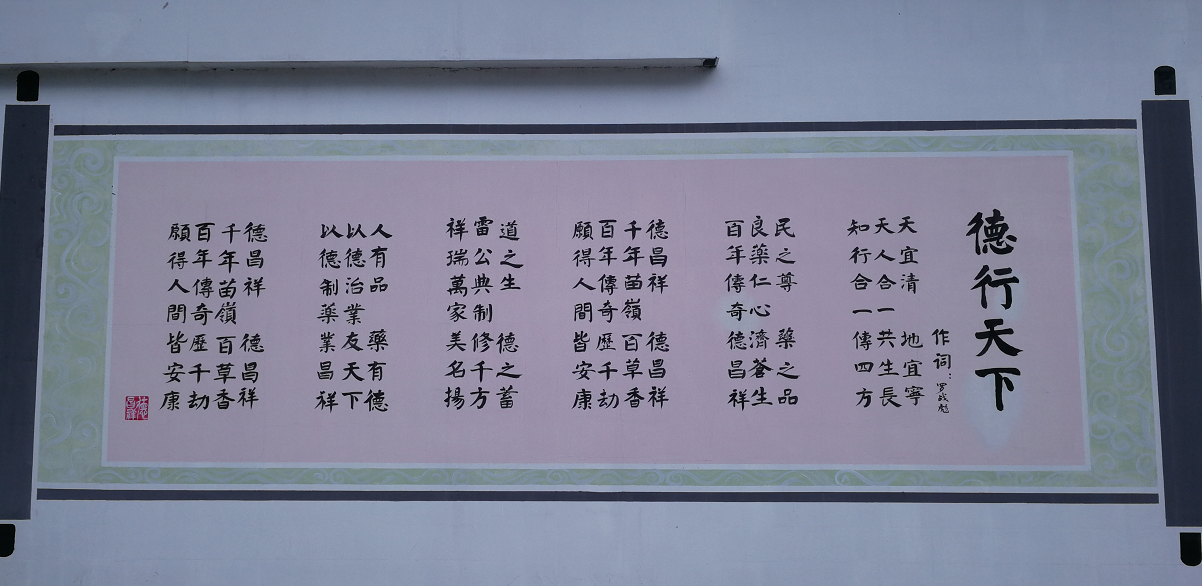 德行天下
作词：罗战彪
天宜清 地宜寧
天人合一共生長
知行合一傳四方
民之尊 藥之品
良藥仁心濟蒼生
百年傳奇德昌祥
德昌祥 德昌祥
千年苗嶺百草香
百年傳奇歷千劫
願得人間皆安康
道之生 德之蓄
雷公典制修千方
祥瑞萬家美名揚
人有品 藥有德
以德治業友天下
以德制藥業昌祥
德昌祥 德昌祥
千年苗嶺百草香
百年傳奇歷千劫
願得人間皆安康
德昌祥